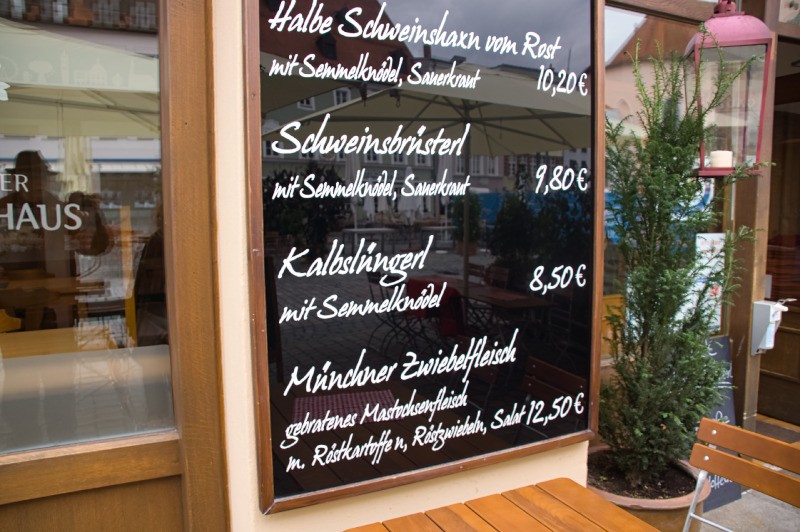 Halbe Schweinshaxn vom Rost
mit Semmelknödel, Sauerkraut 10,20 €
Schweinsbrüsterl
mit Semmelknödel, Sauerkraut 9,80 €
Kalbslüngerl
mit Semmelknödel 8,50 €
Münchner Zwiebelfleisch
gebratenes Mastochsenfleisch
m. Röstkartoffe n, Röstzwiebeln, Salat 12,50 €
ER
HAUS